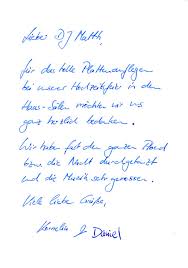 Lieber DJ Matth,
für das tolle Plattenauflegen
bei unserer Hochzeitsfeier in den
Haus-Sälen möchten wir uns
ganz herzlich bedanken.
Wir haben fast den ganzen Abend
bzw die Nacht durchgetanzt
und die Musik sehr genossen.
Viele liebe Grüße,
Kornelia & Daniel